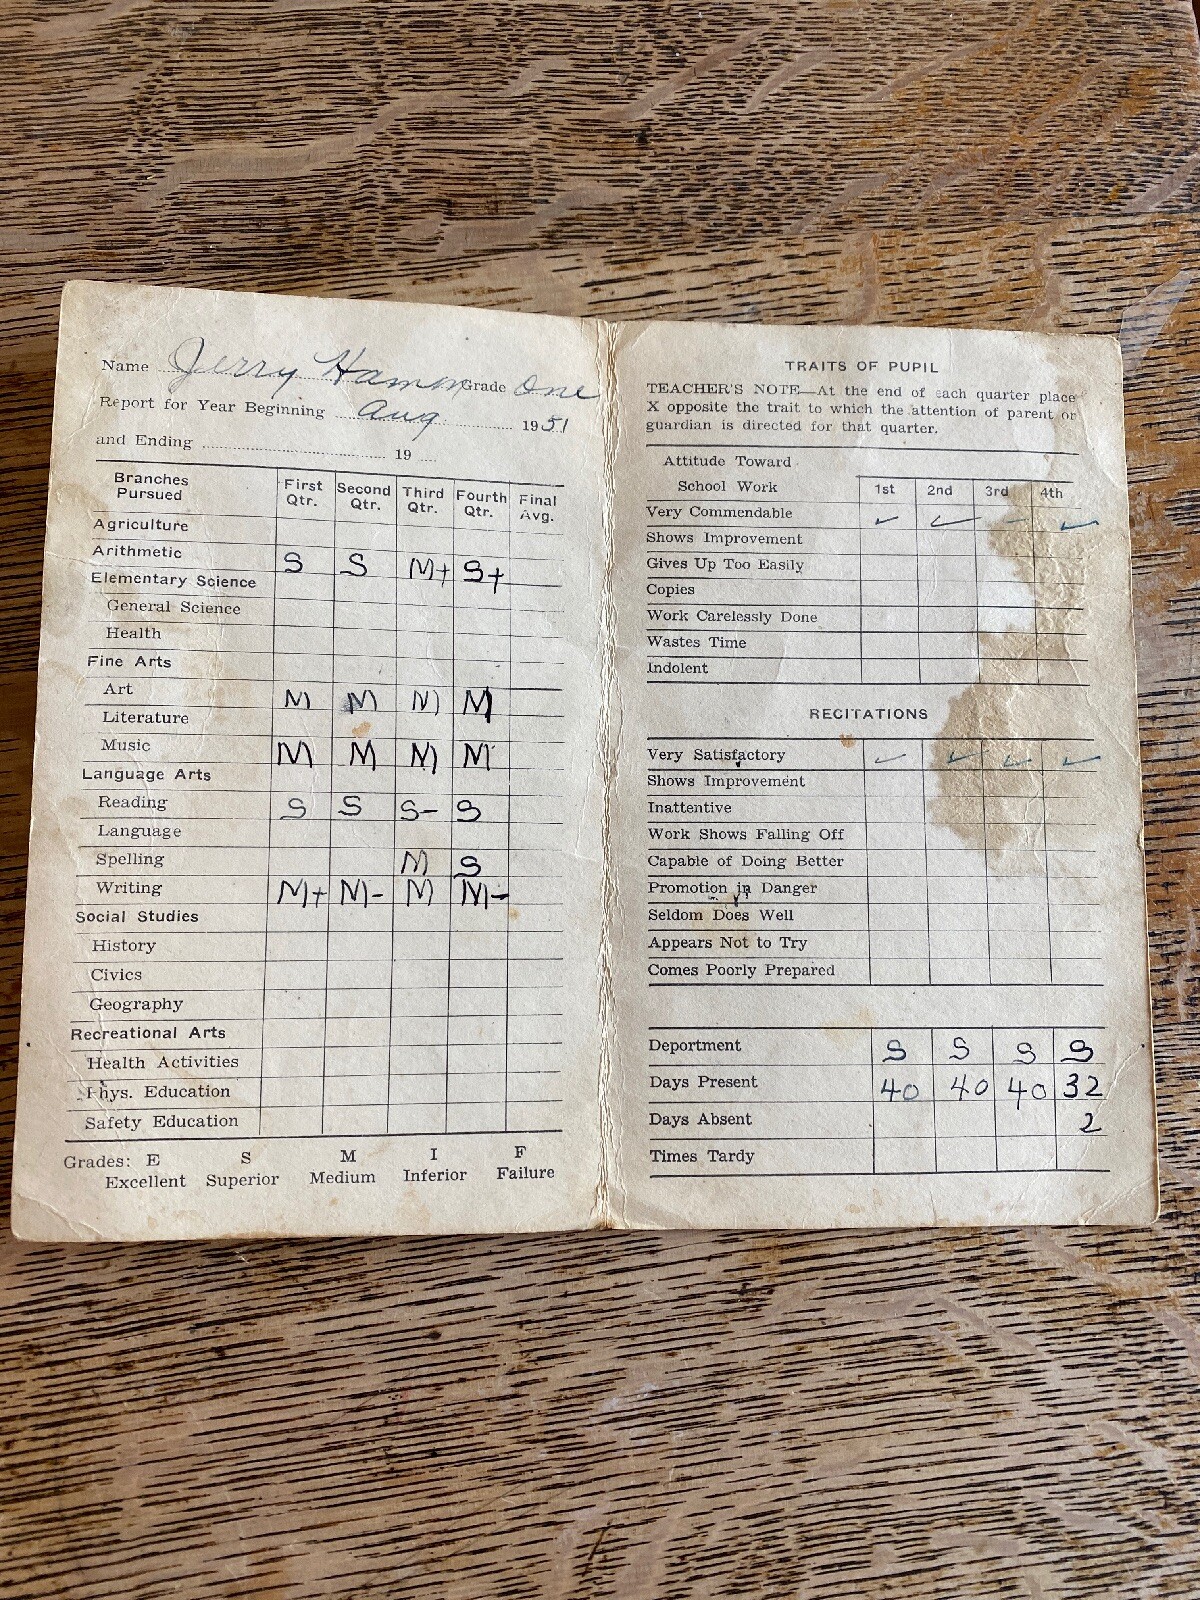 Name Jerry Hamm Grade One
Report for Year Beginning Aug 1951
and Ending 19
Branches Pursued First Qtr. Second Qtr. Third Qtr. Fourth Qtr. Final Avg.
Agriculture
Arithmetic S S M+ S+
Elementary Science
General Science
Health
Fine Arts
Art M M M M
Literature
Music M M M M
Language Arts
Reading S S S- S
Language
Spelling M S
Writing M+ M- M M-
Social Studies
History
Civics
Geography
Recreational Arts
Health Activities
Phys. Education
Safety Education
Grades: E S M I F
Excellent Superior Medium Inferior Failure
TRAITS OF PUPIL
TEACHER'S NOTE—At the end of each quarter place
X opposite the trait to which the attention of parent or
guardian is directed for that quarter.
Attitude Toward
School Work 1st 2nd 3rd 4th
Very Commendable ✓ ✓ ✓ ✓
Shows Improvement
Gives Up Too Easily
Copies
Work Carelessly Done
Wastes Time
Indolent
RECITATIONS
Very Satisfactory ✓ ✓ ✓ ✓
Shows Improvement
Inattentive
Work Shows Falling Off
Capable of Doing Better
Promotion in Danger
Seldom Does Well
Appears Not to Try
Comes Poorly Prepared
Deportment S S S S
Days Present 40 40 40 32
Days Absent 2
Times Tardy